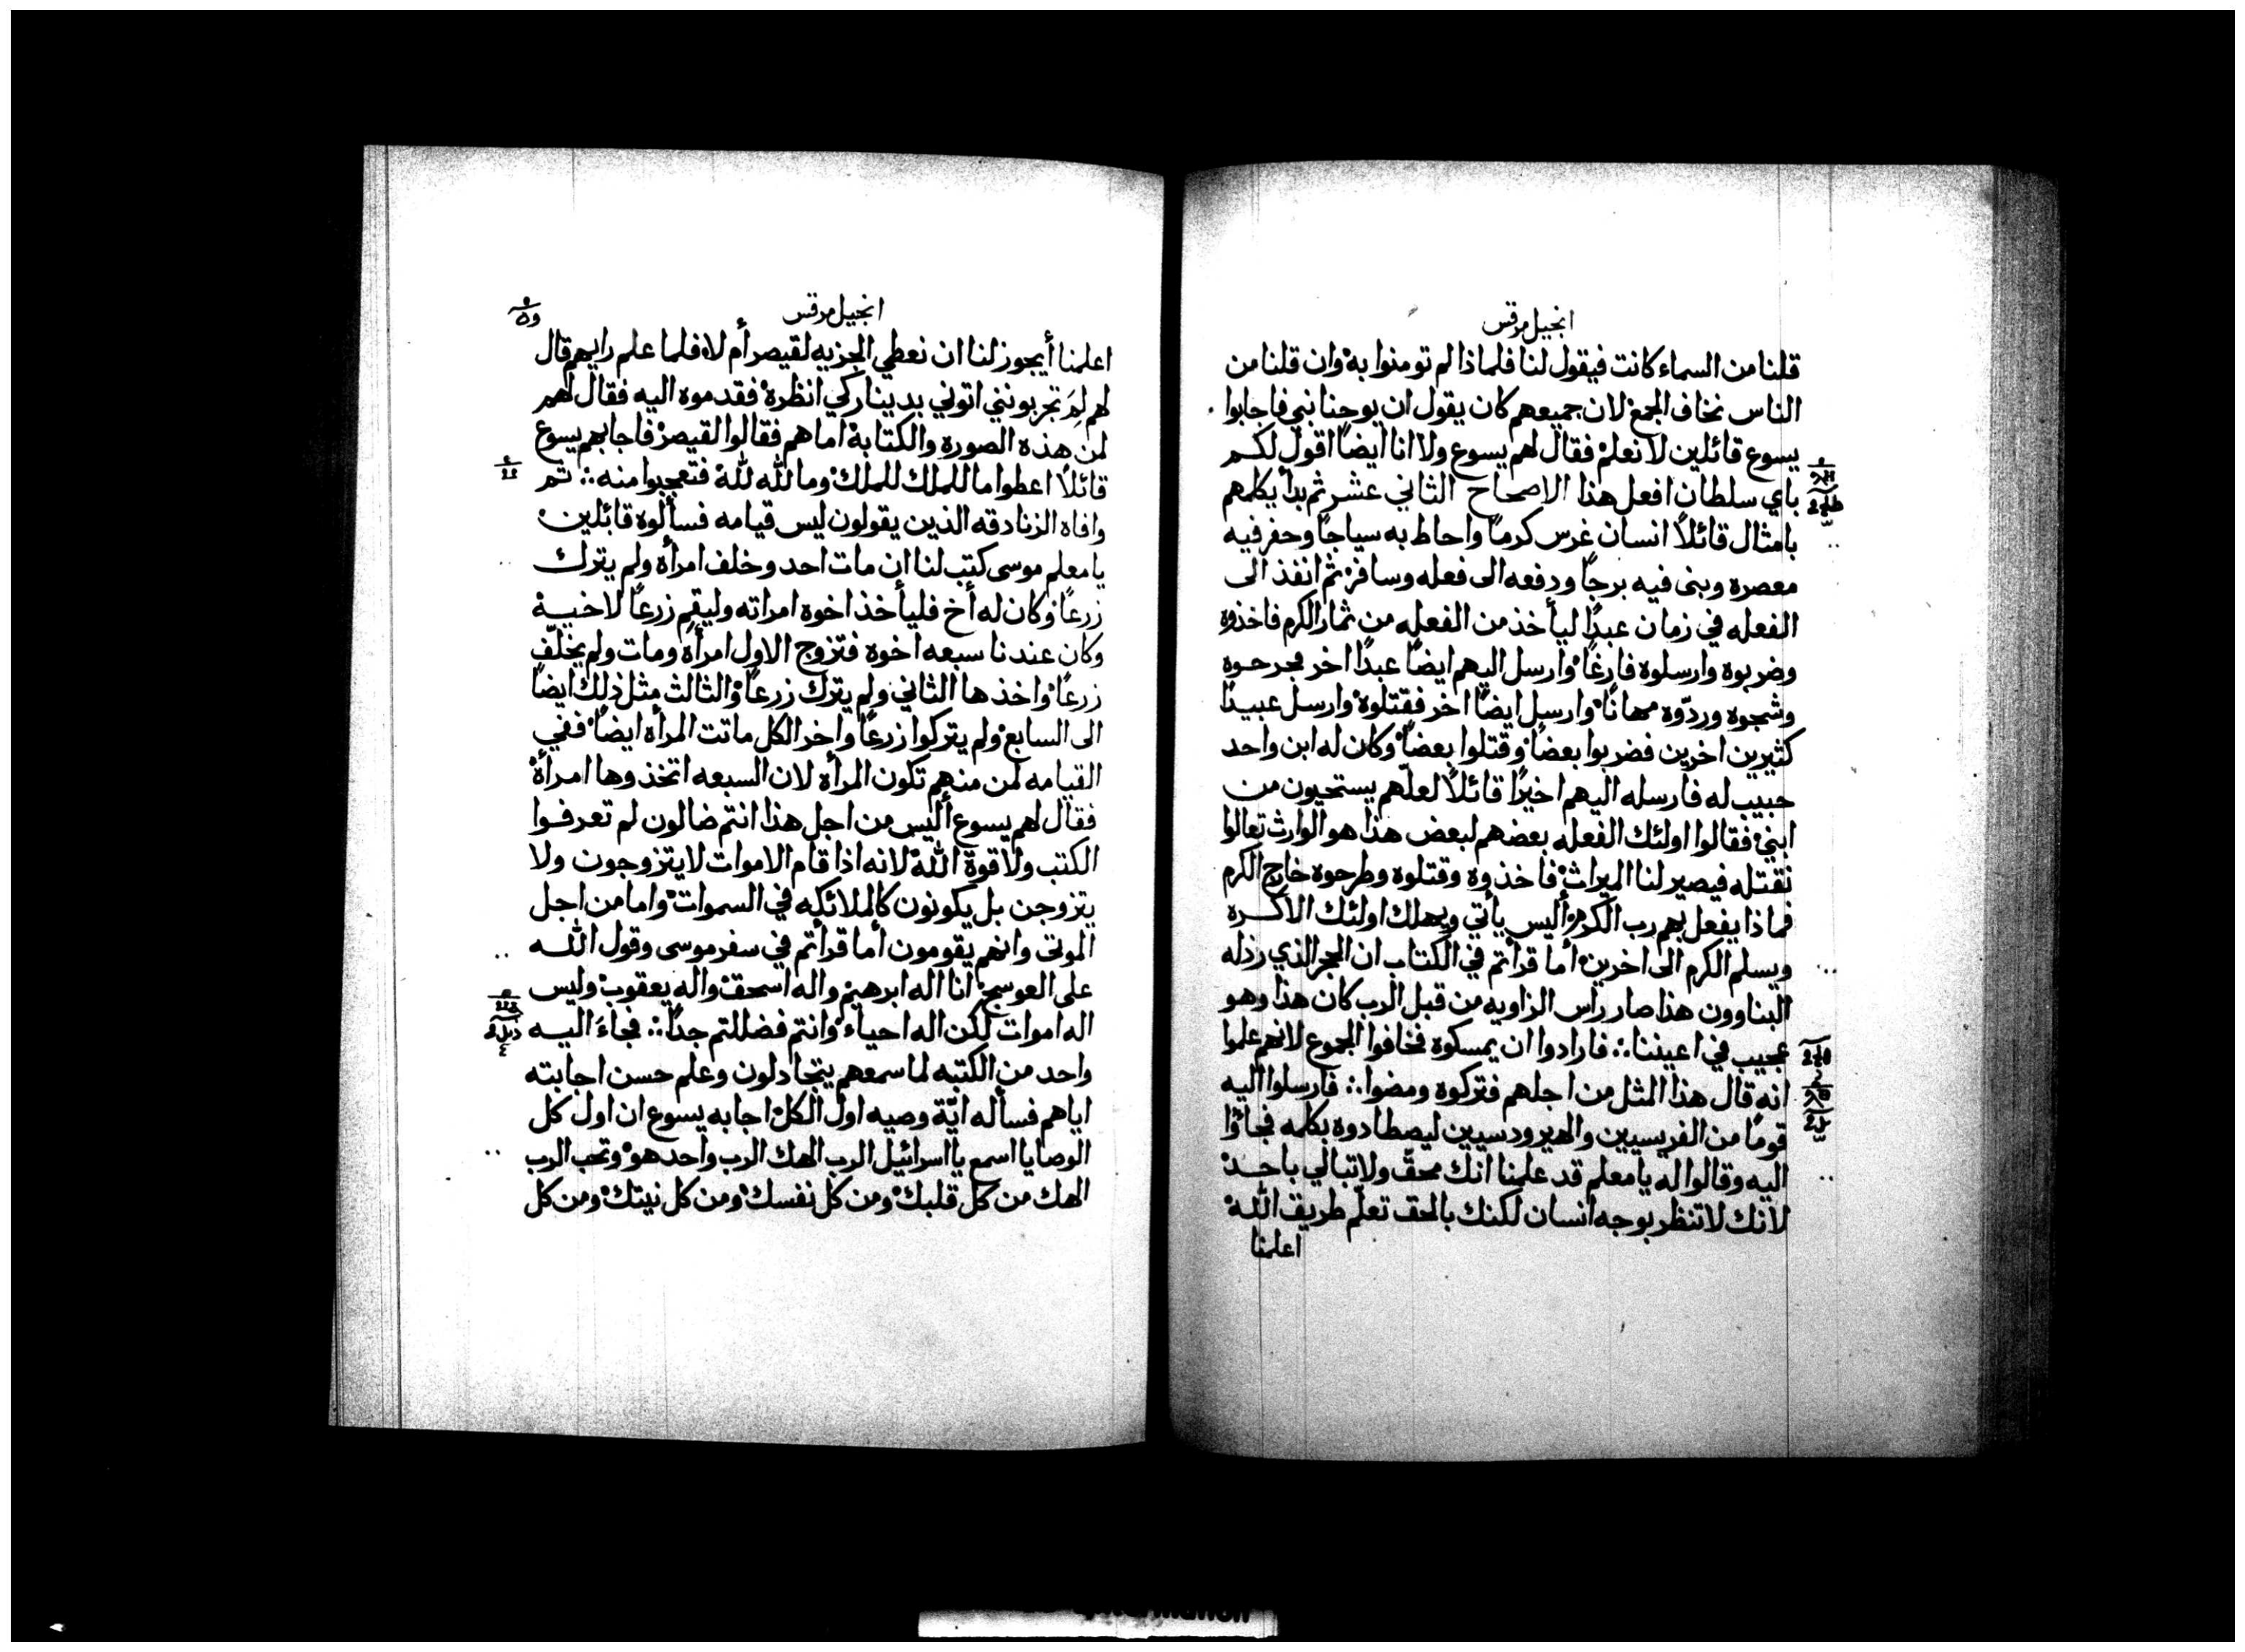 انجيل مرقس
قلنا من السماء كانت فيقول لنا فلماذا لم تومنوا به وان قلنا من
الناس نخاف الجمع لان جميعهم كان يقول ان يوحنا نبي فاجابوا
يسوع قائلين لا نعلم فقال لهم يسوع ولا انا ايضًا اقول لكم
باي سلطان افعل هذا الاصحاح الثاني عشر ثم بدأ يكلمهم
بامثال قائلًا انسان غرس كرمًا واحاط به سياجًا وحفر فيه
معصره وبنى فيه برجًا ودفعه الى فعله وسافر ثم انفذ الى
الفعله في زمان عبدًا ليأخذ من الفعله من ثمار الكرم فاخذوه
وضربوه وارسلوه فارغًا وارسل اليهم ايضًا عبدًا اخر فجرحوه
وشجوه وردّوه مهانًا وارسل ايضًا اخر فقتلوه وارسل عبيدًا
كثيرين اخرين فضربوا بعضًا وقتلوا بعضًا وكان له ابن واحد
حبيب له فارسله اليهم اخيرًا قائلًا لعلّهم يستحيون من
ابني فقالوا اولئك الفعله بعضهم لبعض هذا هو الوارث تعالوا
نقتله فيصير لنا الميراث فاخذوه وقتلوه وطرحوه خارج الكرم
فماذا يفعل بهم رب الكرم أليس يأتي ويهلك اولئك الاكره
ويسلم الكرم الى اخرين أما قرأتم في الكتاب ان الحجر الذي رذله
البناوون هذا صار رأس الزاويه من قبل الرب كان هذا وهو
عجيب في اعيننا ∴ فارادوا ان يمسكوه فخافوا الجموع لانهم علموا
انه قال هذا المثل من اجلهم فتركوه ومضوا ∴ فارسلوا اليه
قومًا من الفريسيين والهيرودسيين ليصطادوه بكلمه فجاؤا
اليه وقالوا له يا معلم قد علمنا انك محقّ ولا تبالي باحد
لانك لا تنظر بوجه انسان لكنك بالحق تعلّم طريق الله
اعلمنا
انجيل مرقس
اعلمنا أيجوز لنا ان نعطي الجزيه لقيصر أم لا فلما علم رايهم قال
لهم لِمَ تجربونني اتوني بدينار كي انظره فقدموه اليه فقال لهم
لمن هذه الصوره والكتابة اما هم فقالوا لقيصر فاجابهم يسوع
قائلًا اعطوا ما للملك للملك وما لله لله فتعجبوا منه ∴ ثم
وافاه الزنادقه الذين يقولون ليس قيامه فسألوه قائلين
يا معلم موسى كتب لنا ان مات احد وخلف امرأه ولم يترك
زرعًا وكان له أخ فليأخذ اخوه امراته وليقم زرعًا لاخيه
وكان عندنا سبعه اخوه فتزوج الاول امرأه ومات ولم يخلّف
زرعًا واخذها الثاني ولم يترك زرعًا والثالث مثل ذلك ايضًا
الى السابع ولم يتركوا زرعًا واخر الكل ماتت المرأه ايضًا ففي
القيامه لمن منهم تكون المرأه لان السبعه اتخذوها امرأة
فقال لهم يسوع أليس من اجل هذا انتم ضالون لم تعرفوا
الكتب ولا قوة الله لانه اذا قام الاموات لا يتزوجون ولا
يتزوجن بل يكونون كالملائكه في السموات واما من اجل
الموتى وانهم يقومون أما قرأتم في سفر موسى وقول الله
على العوسج انا اله ابرهيم واله اسحق واله يعقوب وليس
اله اموات لكن اله احياء وانتم فضللتم جدًا ∴ فجاءَ اليه
واحد من الكتبه لما سمعهم يتجادلون وعلم حسن اجابته
اياهم فسأله ايّة وصيه اول الكل اجابه يسوع ان اول كل
الوصايا اسمع يا اسرائيل الرب الهك الرب واحد هو وتحب الرب
الهك من كل قلبك ومن كل نفسك ومن كل نيتك ومن كل